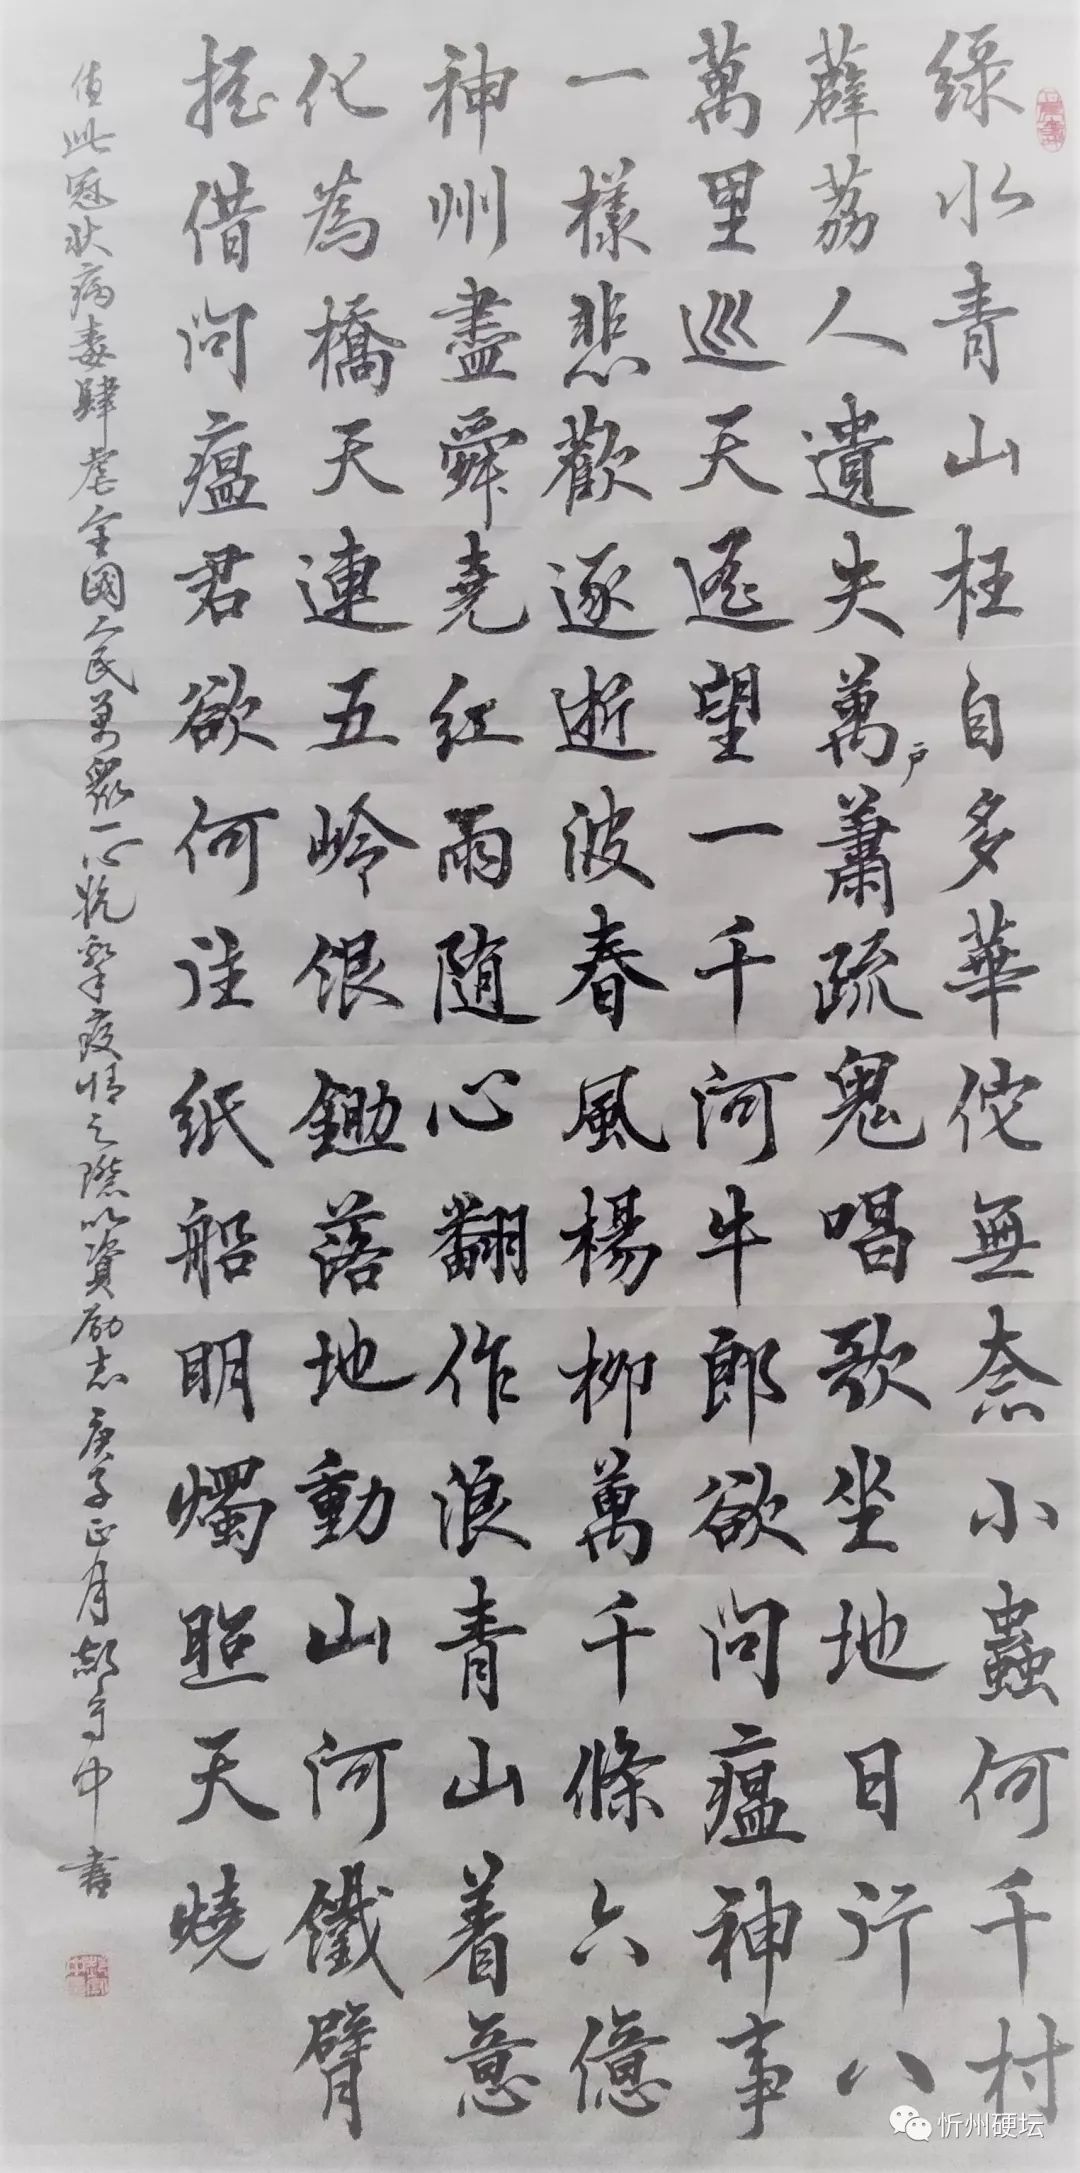 綠水青山枉自多華佗無奈小蟲何千村
薜荔人遺失萬戶蕭疏鬼唱歌坐地日行八
萬里巡天遙望一千河牛郎欲問瘟神事
一樣悲歡逐逝波春風楊柳萬千條六億
神州盡舜堯紅雨隨心翻作浪青山着意
化為橋天連五岭銀鋤落地動山河鐵臂
搖借問瘟君欲何往紙船明燭照天燒
值此冠狀病毒肆虐全國人民萬眾一心抗擊疫情之際以資励志庚子正月郝守中書
忻州硬坛